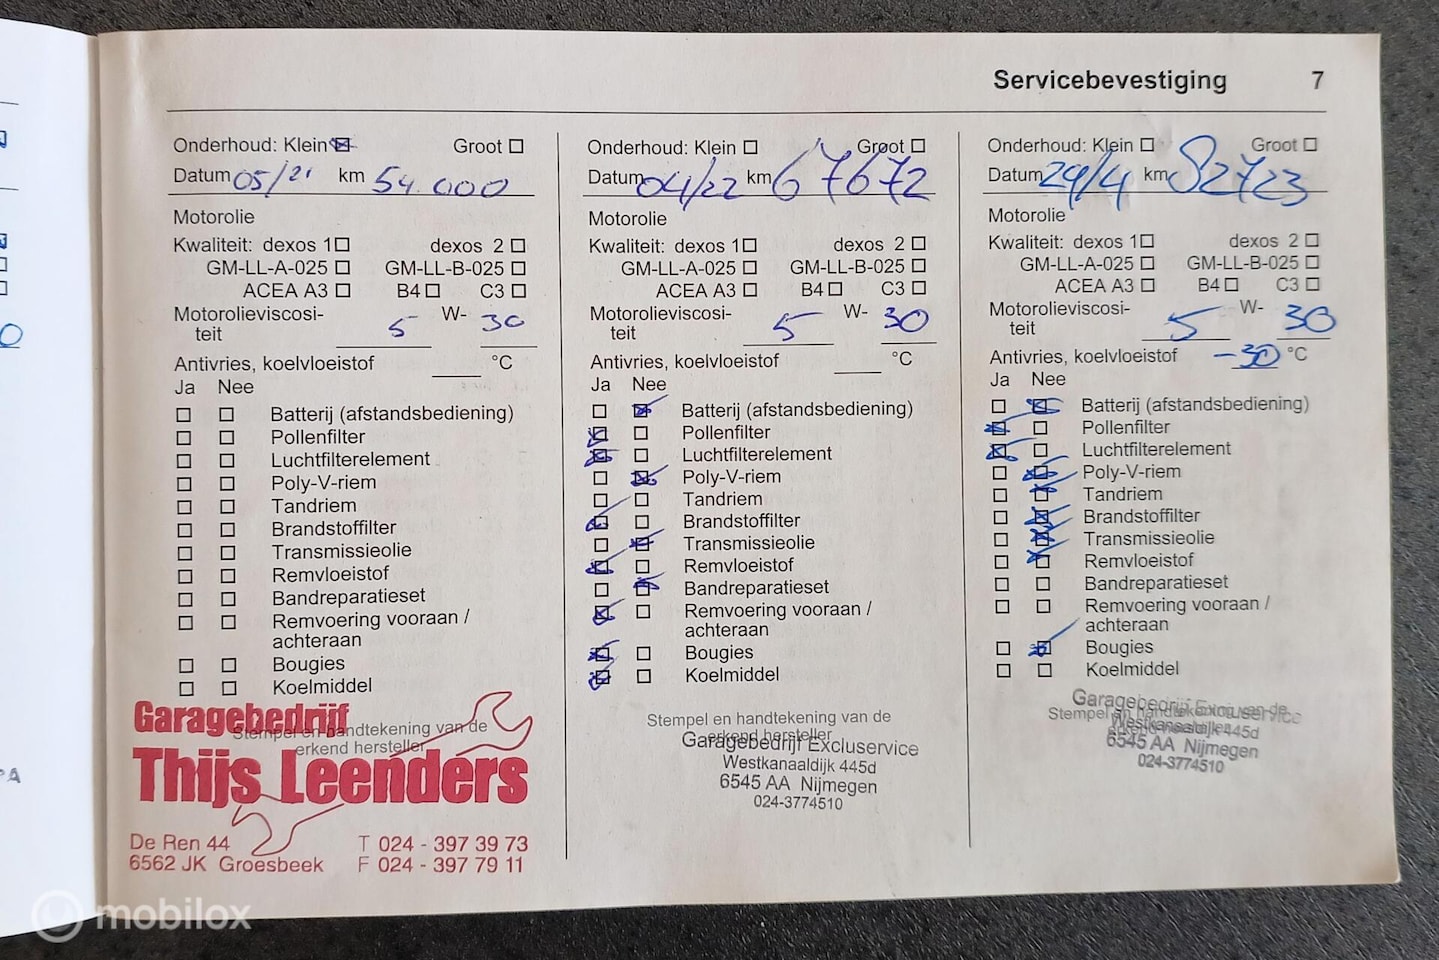 Servicebevestiging 7
Onderhoud: Klein Groot
Datum 05/21 km 54.000
Motorolie
Kwaliteit: dexos 1 dexos 2
GM-LL-A-025 GM-LL-B-025
ACEA A3 B4 C3
Motorolieviscosi-
teit 5 W- 30
Antivries, koelvloeistof °C
Ja Nee
Batterij (afstandsbediening)
Pollenfilter
Luchtfilterelement
Poly-V-riem
Tandriem
Brandstoffilter
Transmissieolie
Remvloeistof
Bandreparatieset
Remvoering vooraan /
achteraan
Bougies
Koelmiddel
Stempel en handtekening van de
erkend hersteller
Garagebedrijf
Thijs Leenders
De Ren 44 T 024 - 397 39 73
6562 JK Groesbeek F 024 - 397 79 11
Onderhoud: Klein Groot
Datum 04/22 km 67672
Motorolie
Kwaliteit: dexos 1 dexos 2
GM-LL-A-025 GM-LL-B-025
ACEA A3 B4 C3
Motorolieviscosi-
teit 5 W- 30
Antivries, koelvloeistof °C
Ja Nee
Batterij (afstandsbediening)
Pollenfilter
Luchtfilterelement
Poly-V-riem
Tandriem
Brandstoffilter
Transmissieolie
Remvloeistof
Bandreparatieset
Remvoering vooraan /
achteraan
Bougies
Koelmiddel
Stempel en handtekening van de
erkend hersteller
Garagebedrijf Excluservice
Westkanaaldijk 445d
6545 AA Nijmegen
024-3774510
Onderhoud: Klein Groot
Datum 29/4 km 82723
Motorolie
Kwaliteit: dexos 1 dexos 2
GM-LL-A-025 GM-LL-B-025
ACEA A3 B4 C3
Motorolieviscosi-
teit 5 W- 30
Antivries, koelvloeistof -30 °C
Ja Nee
Batterij (afstandsbediening)
Pollenfilter
Luchtfilterelement
Poly-V-riem
Tandriem
Brandstoffilter
Transmissieolie
Remvloeistof
Bandreparatieset
Remvoering vooraan /
achteraan
Bougies
Koelmiddel
Stempel en handtekening van de
erkend hersteller
Garagebedrijf Excluservice
Westkanaaldijk 445d
6545 AA Nijmegen
024-3774510
mobilox